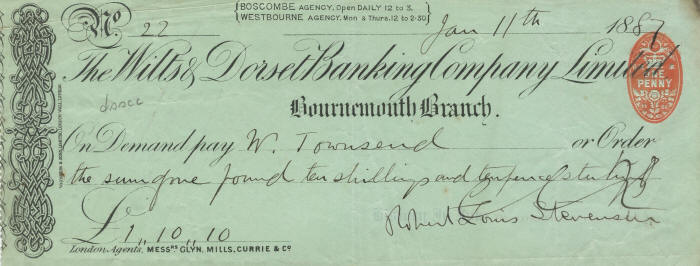 BOSCOMBE AGENCY, Open DAILY 12 to 3.
WESTBOURNE AGENCY. Mon & Thurs. 12 to 2-30
No. 22 Jan 11th 1887
The Wilts & Dorset Banking Company Limited
ONE PENNY
Bournemouth Branch.
On Demand pay W. Townsend or Order
the sum of one pound ten shillings and tenpence sterling
£1,,10,,10
Robert Louis Stevenson
London Agents, MESSRS GLYN, MILLS, CURRIE & Co